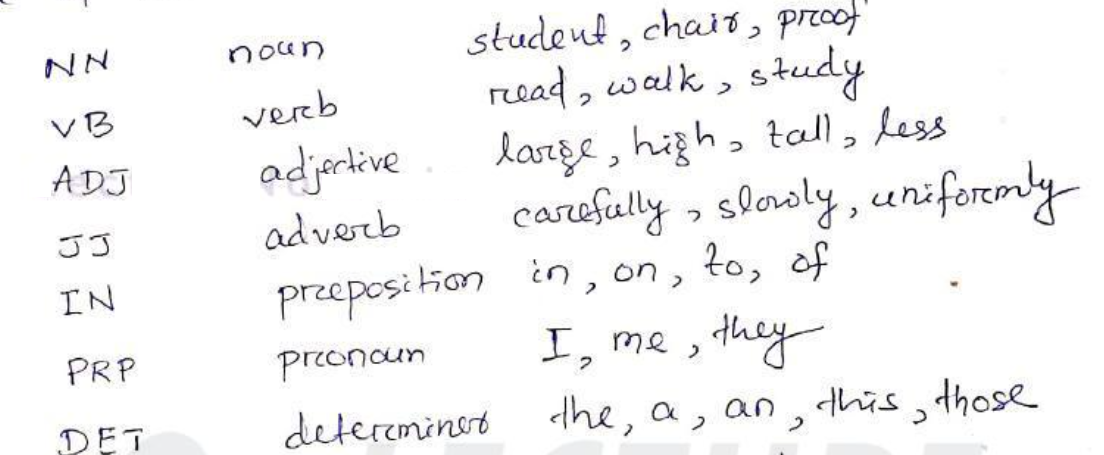 NN noun student, chair, proof
VB verb read, walk, study
ADJ adjective large, high, tall, less
JJ adverb carefully, slowly, uniformly
IN preposition in, on, to, of
PRP pronoun I, me, they
DET determiner the, a, an, this, those